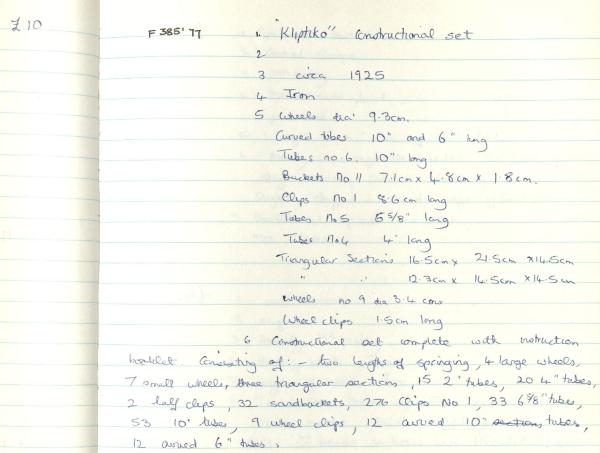 £10
F 385'77
1. "Kliptiko" Constructional set
2
3 circa 1925
4 Iron
5 Wheels dia' 9.3cm.
Curved tubes 10" and 6" long
Tubes no.6. 10" long
Buckets No 11 7.1cm x 4.8cm x 1.8cm.
Clips no 1 8.6cm long
Tubes No 5 6 5/8" long
Tubes No 4 4" long
Triangular Sections 16.5cm x 21.5cm x 14.5cm
" " 12.3cm x 14.5cm x 14.5cm
Wheels no 9 dia 3.4 cms
Wheel clips 1.5cm long
6 Constructional set complete with instruction
booklet. Consisting of:- two lengths of springing, 4 large wheels,
7 small wheels, three triangular sections, 15 2" tubes, 20 4" tubes,
2 half clips, 32 sandbuckets, 276 Clips No 1, 33 6 5/8" tubes,
53 10" tubes, 9 wheel clips, 12 curved 10" section, tubes,
12 curved 6" tubes.